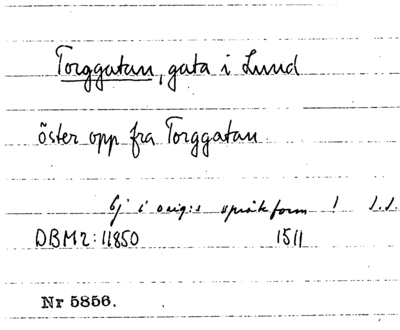 Torggatan, gata i Lund
öster opp fra Torggatan
Ej i orig:s språkform! S.S.
DBM 2:11850 1511
Nr 5856.